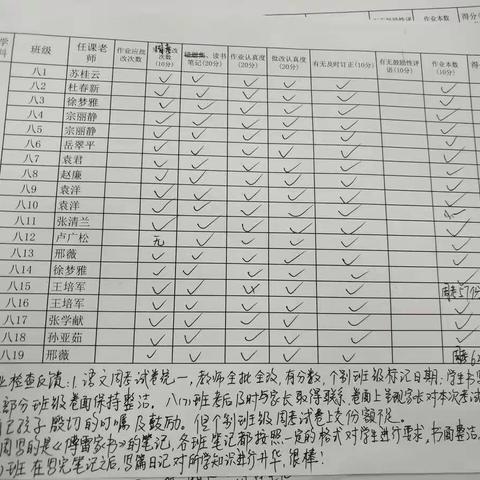 有无鼓励性评 作业本数 得分
学科 班级 任课老师 作业应批改次数 周考 次数(10分) 读书笔记(20分) 作业认真度(20分) 批改认真度(20分) 有无及时订正(10分) 有无鼓励性评语(10分) 作业本数(10分) 得
八1 苏桂云 ✓ ✓ ✓ ✓ ✓ ✓
八2 杜春新 ✓ ✓ ✓ ✓ ✓ ✓
八3 徐梦雅 ✓ ✓ ✓ ✓ ✓ ✓
八4 宗丽静 ✓ ✓ ✓ ✓ ✓ ✓
八5 宗丽静 ✓ ✓ ✓ ✓ ✓ ✓
八6 岳翠平 ✓ ✓ ✓ ✓ ✓ ✓
八7 袁君 ✓ ✓ ✓ ✓ ✓ ✓
八8 赵廉 ✓ ✓ ✓ ✓ ✓ ✓
八9 袁洋 ✓ ✓ ✓ ✓ ✓ ✓
八10 袁洋 ✓ ✓ ✓ ✓ ✓
八11 张清兰 ✓ ✓ ✓ ✓ ✓
八12 卢广松 无 ✓ ✓ ✓ ✓ ✓
八13 邢薇 ✓ ✓ ✓ ✓ ✓ ✓
八14 徐梦雅 ✓ ✓ ✓ ✓ ✓ ✓
八15 王培军 ✓ ✓ ✗ ✓ ✓ 周考57份
八16 王培军 ✓ ✓ ✓ ✓ ✓ ✓
八17 张学献 ✓ ✓ ✓ ✓ ✓ ✓
八18 孙亚茹 ✓ ✓ ✓ ✓ ✓ ✓
八19 邢薇 ✓ ✓ ✓ ✓ ✓
业检查反馈:1.语文周考试卷统一,教师全批全改,有分数,个别班级标记日期;学生书
部分班级卷面保持整洁。八(7)班考后及时与家长取得联系,卷面上呈现家长对本次考试
自己孩子殷切的叮嘱及鼓励。但个别班级周考试卷上交份额不足。
周写的是《傅雷家书》的笔记,各班笔记都按照一定的格式对学生进行要求,书面整洁,
班在写完笔记之后,写篇日记对所学知识进行升华,很棒!